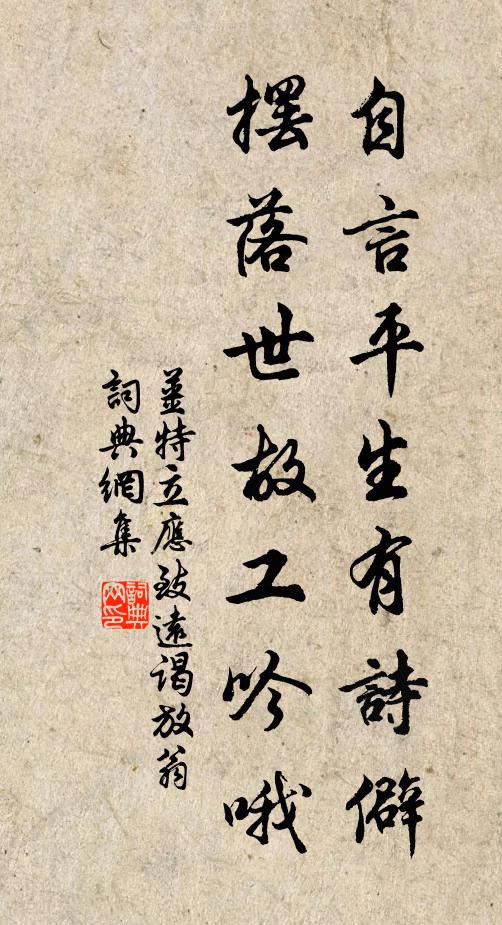 自言平生有詩僻
擺落世故工吟哦
姜特立應致遠謁放翁
詞典網集
詞典網印